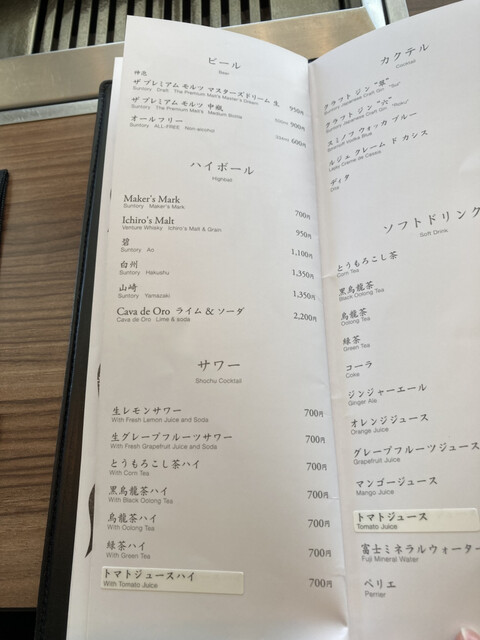 ビール
Beer
神泡
ザ プレミアム モルツ マスターズドリーム 生 950円
Suntory Draft The Premium Malt's Master's Dream
ザ プレミアム モルツ 中瓶 900円
Suntory The Premium Malt's Medium Bottle
オールフリー 600円
Suntory ALL-FREE Non-alcohol
ハイボール
Highball
Maker's Mark 700円
Suntory Maker's Mark
Ichiro's Malt 950円
Venture Whisky Ichiro's Malt & Grain
碧 1,100円
Suntory Ao
白州 1,350円
Suntory Hakushu
山崎 1,350円
Suntory Yamazaki
Cava de Oro ライム & ソーダ 2,200円
Cava de Oro Lime & soda
サワー
Shochu Cocktail
生レモンサワー 700円
With Fresh Lemon Juice and Soda
生グレープフルーツサワー 700円
With Fresh Grapefruit Juice and Soda
とうもろこし茶ハイ 700円
With Corn Tea
黒烏龍茶ハイ 700円
With Black Oolong Tea
烏龍茶ハイ 700円
With Oolong Tea
緑茶ハイ 700円
With Green Tea
トマトジュースハイ 700円
With Tomato Juice
カクテル
Cocktail
クラフト ジン "翠"
クラフト ジン "六"
Suntory Japanese Craft Gin "Roku"
スミノフ ウォッカ ブルー
Smirnoff Vodka Blue
ルジェ クレーム ド カシス
Lejay Crème de Cassis
ディタ
Dita
ソフトドリンク
Soft Drink
とうもろこし茶
Corn Tea
黒烏龍茶
Black Oolong Tea
烏龍茶
Oolong Tea
緑茶
Green Tea
コーラ
Coke
ジンジャーエール
Ginger Ale
オレンジジュース
Orange Juice
グレープフルーツジュース
Grapefruit Juice
マンゴージュース
Mango Juice
トマトジュース
Tomato Juice
富士ミネラルウォーター
Fuji Mineral Water
ペリエ
Perrier